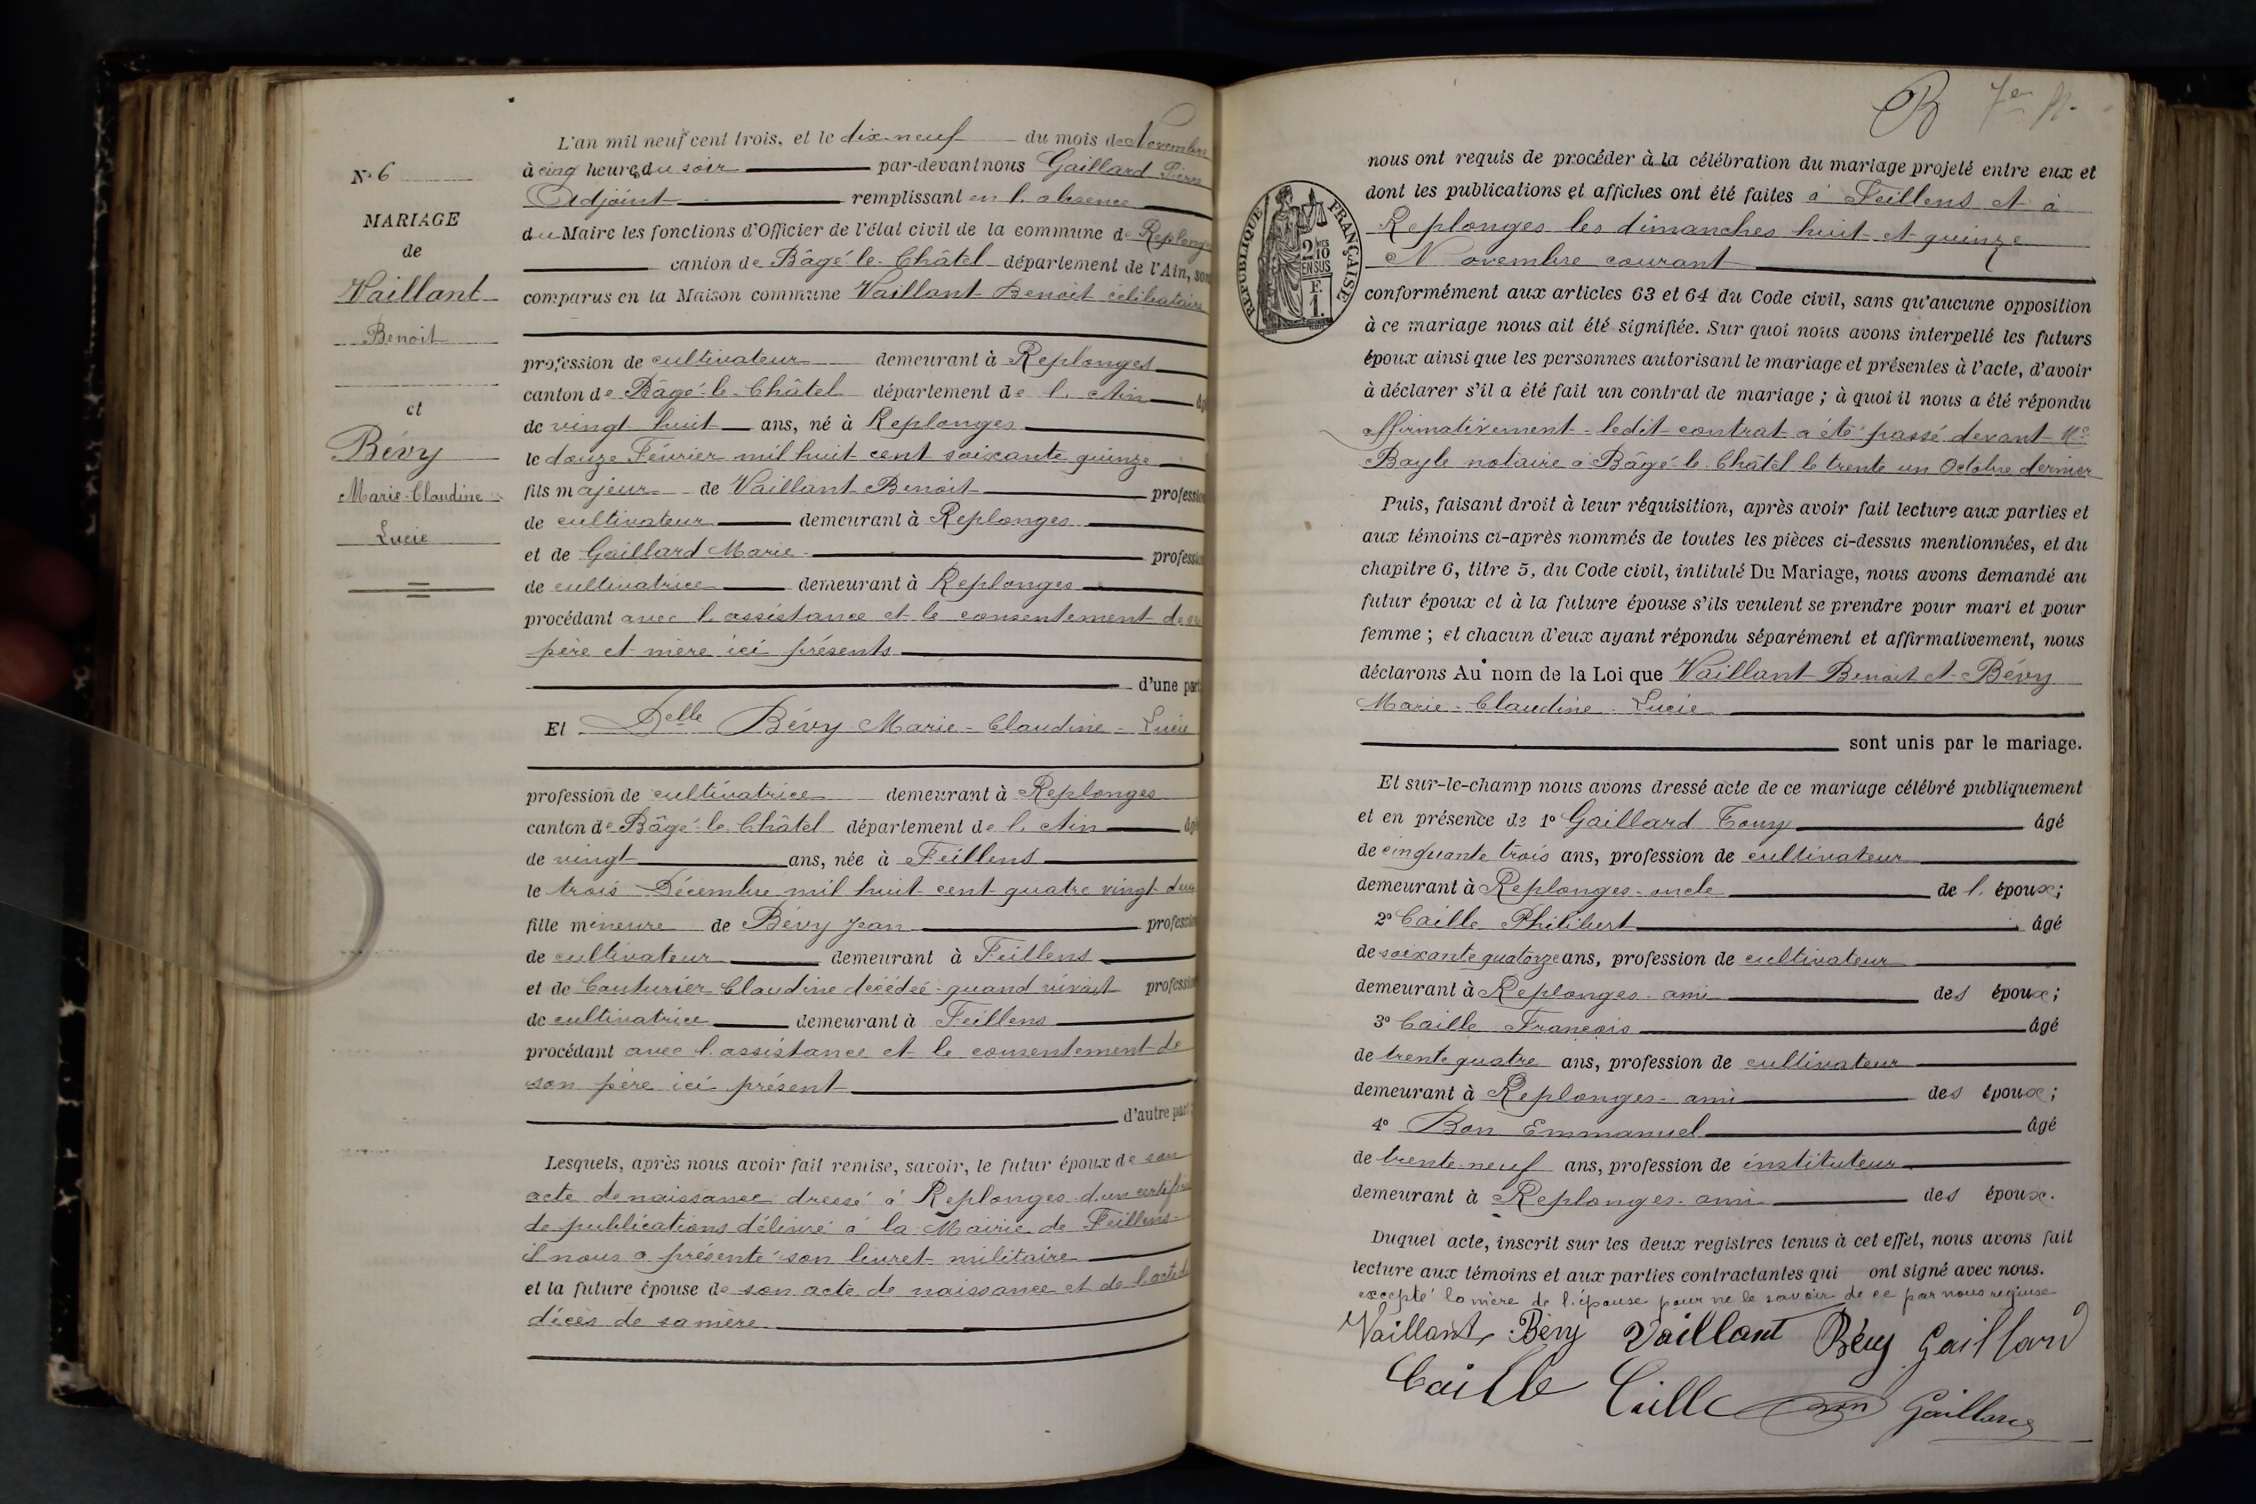 N° 6
MARIAGE
de
Vaillant
Benoit
et
Bévy
Marie-Claudine
Lucie
L'an mil neuf cent trois, et le dix-neuf du mois de Novembre
à cinq heures du soir par-devant nous Gaillard Pierre
Adjoint remplissant en l'absence
du Maire les fonctions d'Officier de l'état civil de la commune de Replonges
canton de Bâgé-le-Châtel département de l'Ain, sont
comparus en la Maison commune Vaillant Benoit célibataire
profession de cultivateur demeurant à Replonges
canton de Bâgé-le-Châtel département de l'Ain âgé
de vingt huit ans, né à Replonges
le douze Février mil huit cent soixante quinze
fils majeur de Vaillant Benoit profession
de cultivateur demeurant à Replonges
et de Gaillard Marie profession
de cultivatrice demeurant à Replonges
procédant avec l'assistance et le consentement de ses
père et mère ici présents
d'une part
Et Delle Bévy Marie-Claudine-Lucie
profession de cultivatrice demeurant à Replonges
canton de Bâgé-le-Châtel département de l'Ain âgé
de vingt ans, née à Feillens
le trois Décembre mil huit cent quatre vingt deux
fille mineure de Bévy Jean profession
de cultivateur demeurant à Feillens
et de Couturier Claudine décédée quand vivait profession
de cultivatrice demeurant à Feillens
procédant avec l'assistance et le consentement de
son père ici présent
d'autre part
Lesquels, après nous avoir fait remise, savoir, le futur époux de son
acte de naissance dressé à Replonges d'un certificat
de publications délivré à la Mairie de Feillens
il nous a présenté son livret militaire
et la future épouse de son acte de naissance et de l'acte de
décès de sa mère
RÉPUBLIQUE FRANÇAISE
2 10
EN SUS
F.
1.
nous ont requis de procéder à la célébration du mariage projeté entre eux et
dont les publications et affiches ont été faites à Feillens et à
Replonges les dimanches huit et quinze
Novembre courant
conformément aux articles 63 et 64 du Code civil, sans qu'aucune opposition
à ce mariage nous ait été signifiée. Sur quoi nous avons interpellé les futurs
époux ainsi que les personnes autorisant le mariage et présentes à l'acte, d'avoir
à déclarer s'il a été fait un contrat de mariage ; à quoi il nous a été répondu
affirmativement - ledit contrat a été passé devant Me
Bayle notaire à Bâgé-le-Châtel le trente un Octobre dernier
Puis, faisant droit à leur réquisition, après avoir fait lecture aux parties et
aux témoins ci-après nommés de toutes les pièces ci-dessus mentionnées, et du
chapitre 6, titre 5, du Code civil, intitulé Du Mariage, nous avons demandé au
futur époux et à la future épouse s'ils veulent se prendre pour mari et pour
femme ; et chacun d'eux ayant répondu séparément et affirmativement, nous
déclarons Au nom de la Loi que Vaillant Benoit et Bévy
Marie-Claudine-Lucie
sont unis par le mariage.
Et sur-le-champ nous avons dressé acte de ce mariage célébré publiquement
et en présence de 1° Gaillard Tony âgé
de cinquante trois ans, profession de cultivateur
demeurant à Replonges - oncle de l'époux ;
2° Caille Philibert âgé
de soixante quatorze ans, profession de cultivateur
demeurant à Replonges - ami des époux ;
3° Caille François âgé
de trente quatre ans, profession de cultivateur
demeurant à Replonges - ami des époux ;
4° Bon Emmanuel âgé
de trente-neuf ans, profession de instituteur
demeurant à Replonges - ami des époux.
Duquel acte, inscrit sur les deux registres tenus à cet effet, nous avons fait
lecture aux témoins et aux parties contractantes qui ont signé avec nous.
excepté la mère de l'épouse pour ne le savoir de ce par nous requise
Vaillant Bévy Vaillant Bévy Gaillard
Caille Caille Bon Gaillard